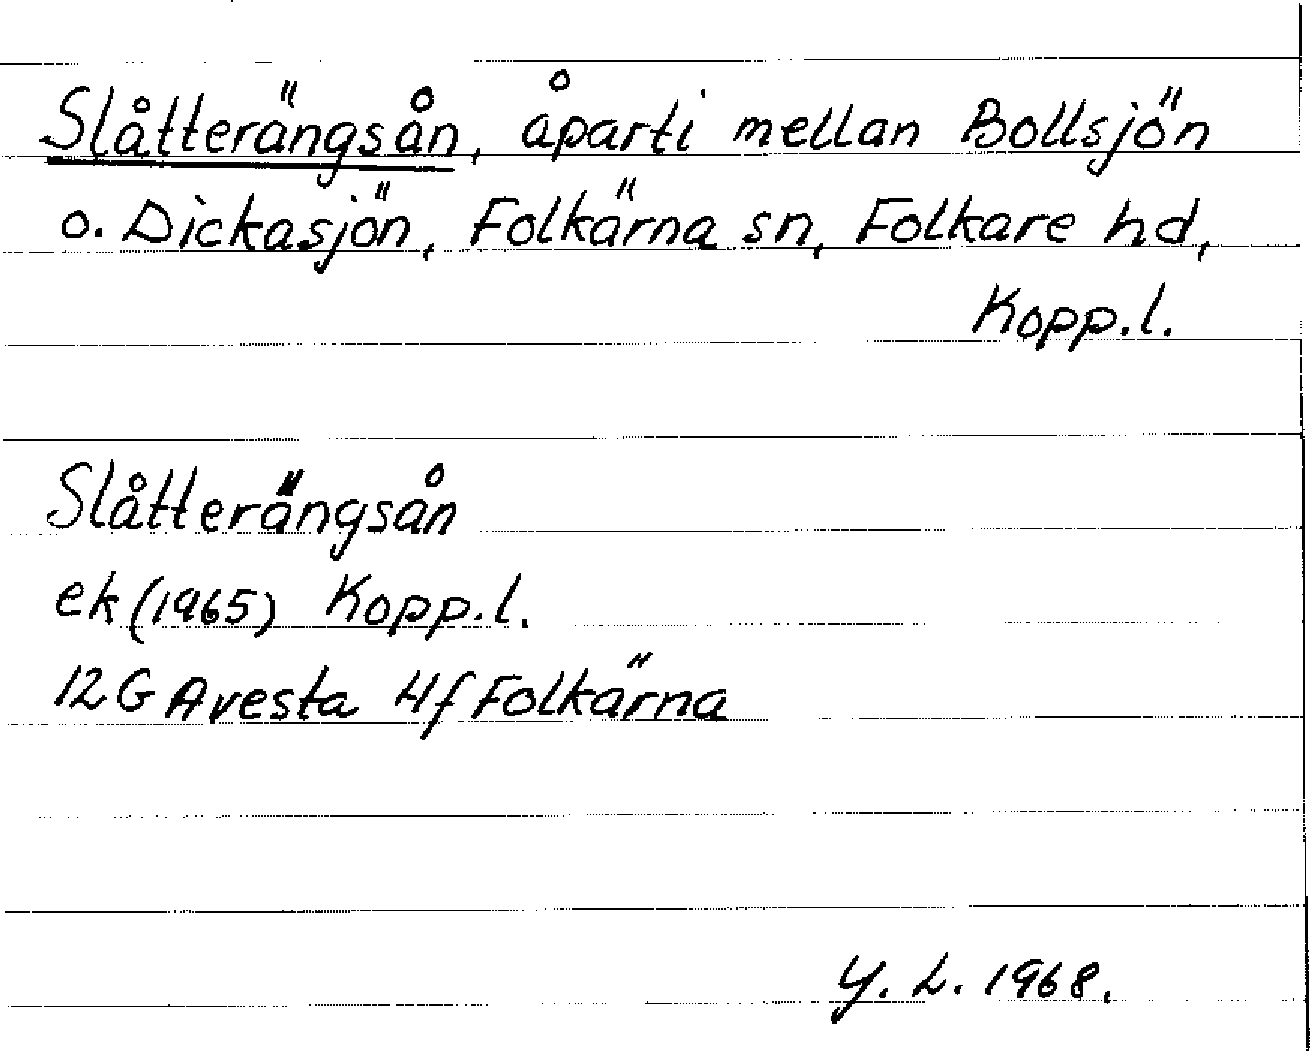 Slåtterängsån, åparti mellan Bollsjön
o. Dickasjön, Folkärna sn, Folkare hd,
Kopp.l.
Slåtterängsån
ek (1965) Kopp.l.
12G Avesta 4f Folkärna
Y. L. 1968.